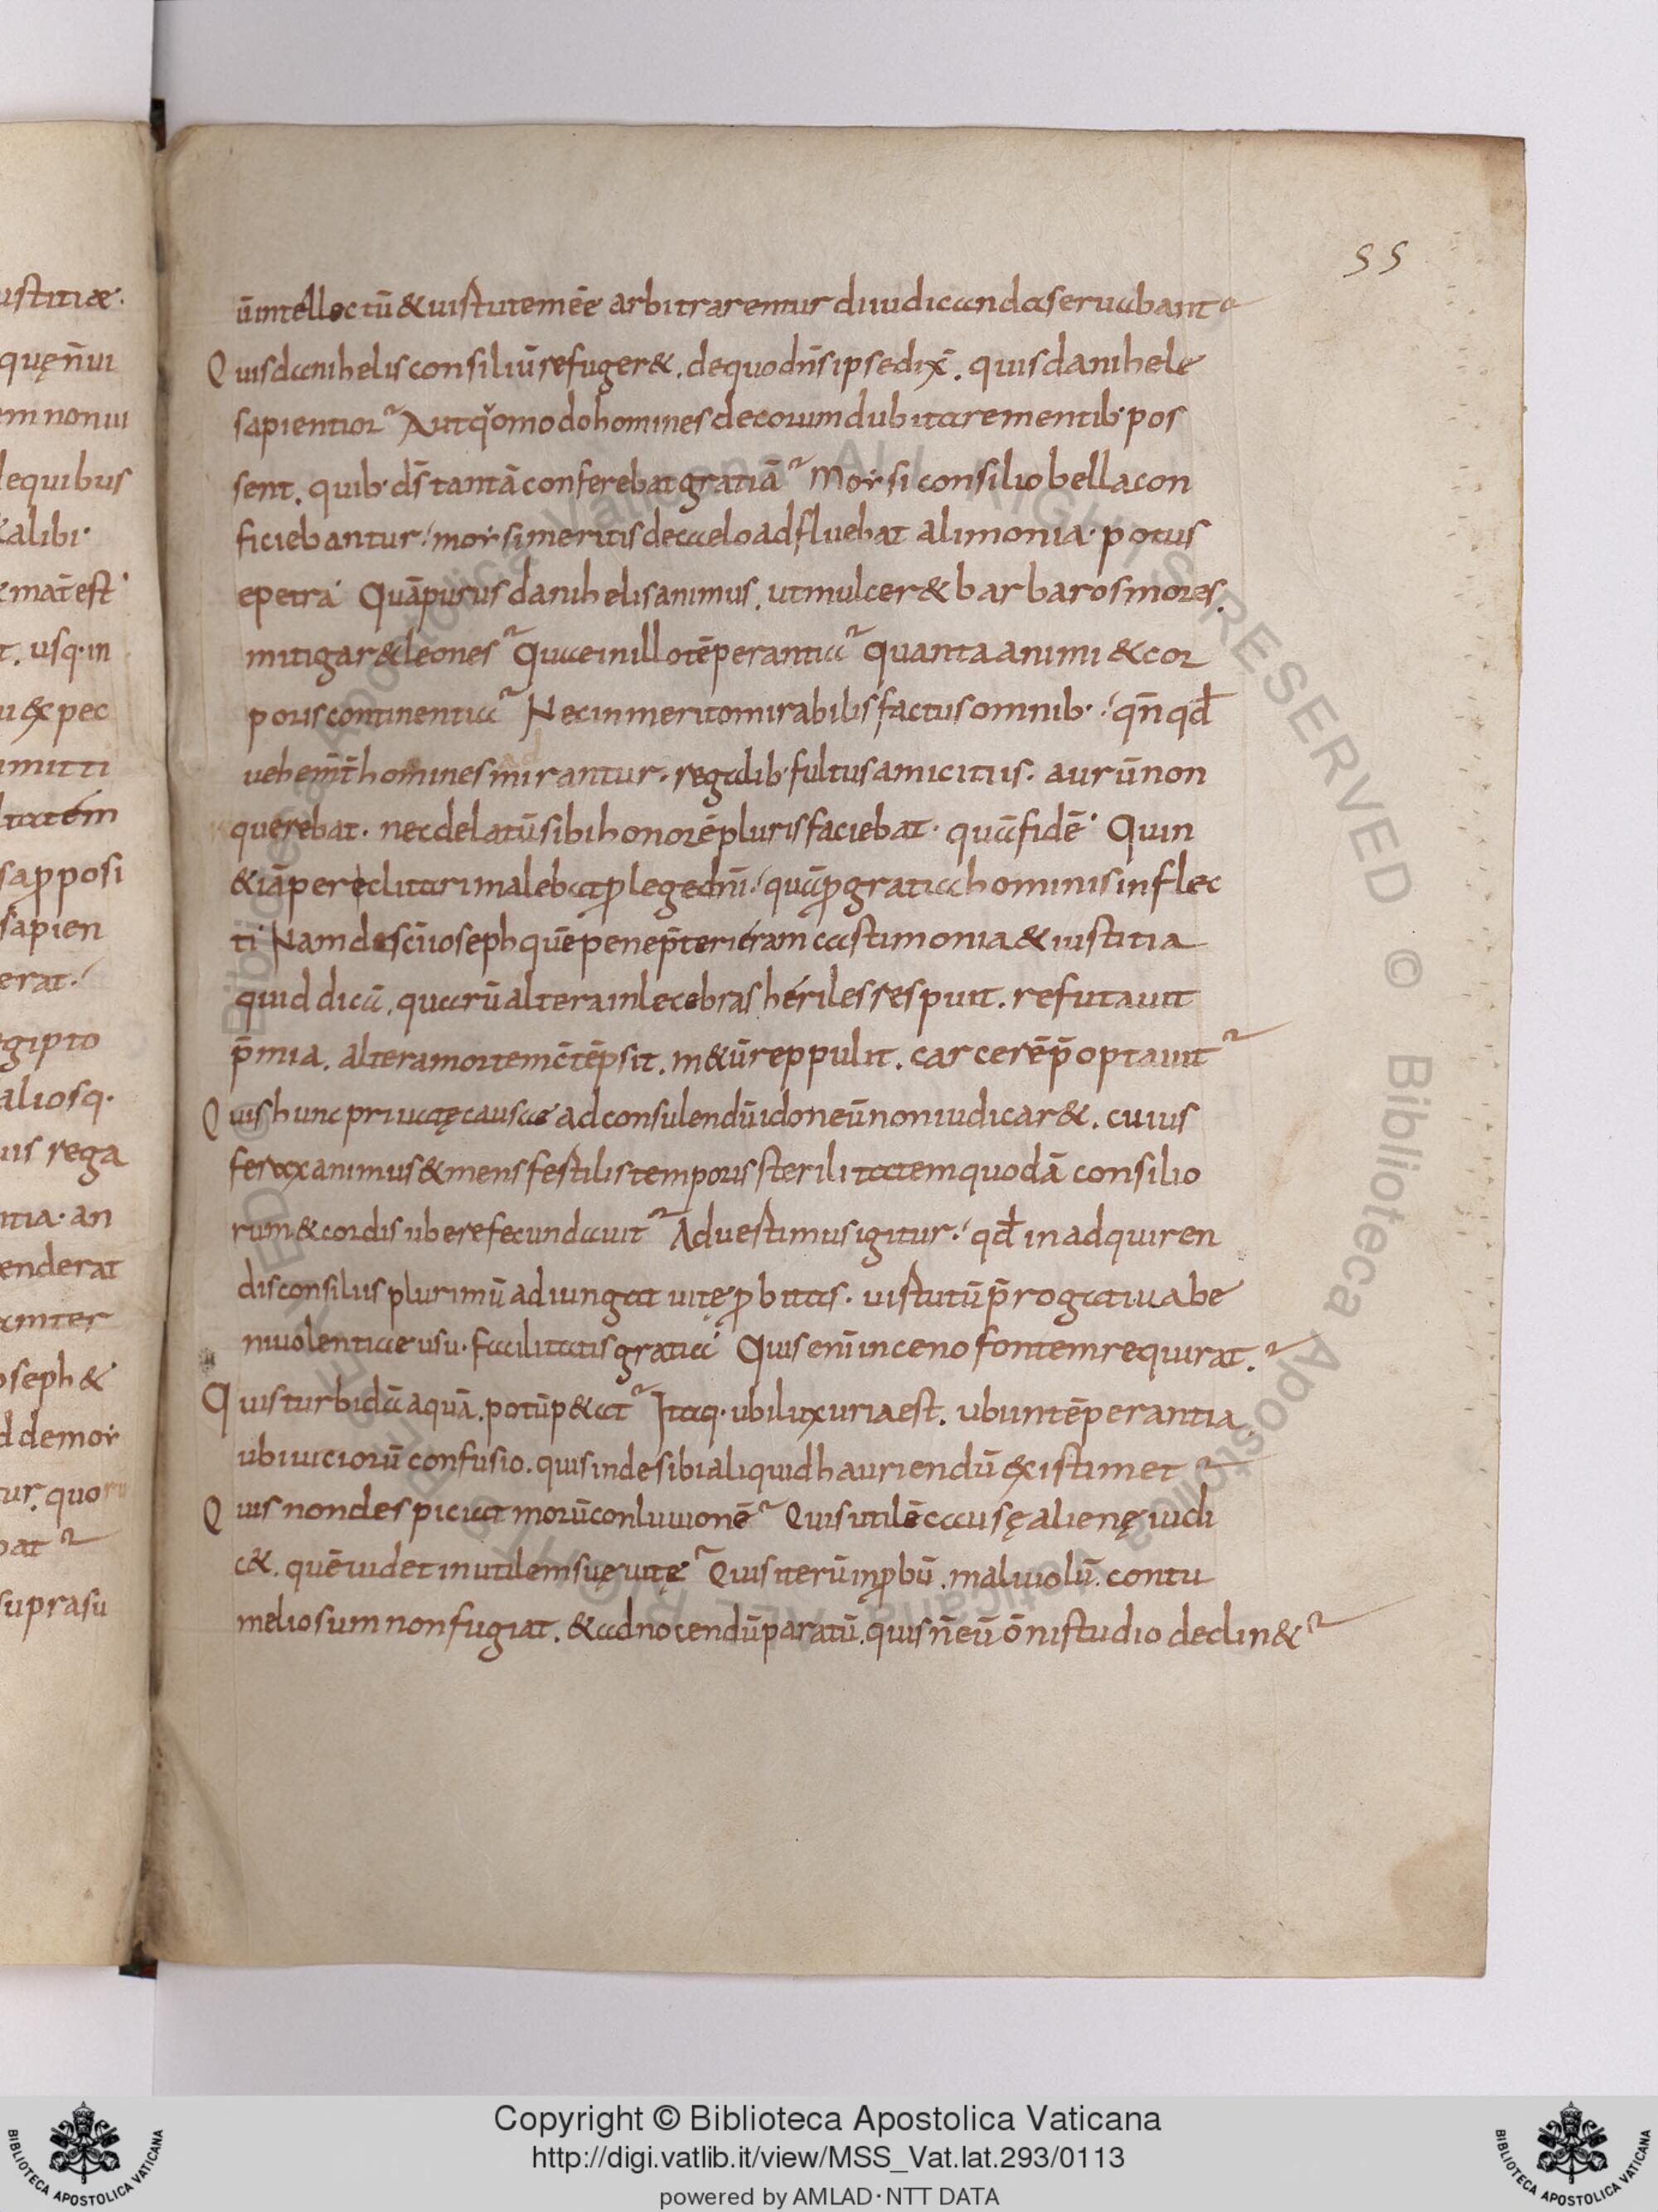 55
ustitiæ.
quęn̄ui
em nonui
dequibus
&alibi.
mat̄est
t. usq. in
u expec
imitti
ltatem
sapposi
sapien
erat.
egipto
aliosq.
uis rega
ntia. an
enderat
aminter
oseph &
d demor
tur. quoru
bat
suprasū
ūintellectū & uirtutemēe arbitraremur diiudicanda seruabant
Quis danihelis consiliū refuger&. de quo dn̄s ipse dix̄. quis danihele
sapientior? Aut qomodo homines de eorum dubitare mentib. pos
sent. quib. ds̄ tantā conferebat gratiā? Moysi consilio bella con
ficiebantur. moysi meritis de caelo adfluebat alimonia. potus
e petra. Quā purus danihelis animus. ut mulcer& barbaros mores.
mitigar& leones? Quae in illo tēperantia? quanta animi & cor
poris continentia? Nec inmerito mirabilis factus omnib. qn̄ qd̄
uehem̄t homines mirantur. regalib. fultus amicitiis. aurū non
querebat. nec delatū sibi honorē pluris faciebat. quā fidē. Quin
& iā pereclitari malebat p lege dnī. quā p gratia hominis inflec
ti. Nam de scō ioseph quē pene p̄terieram castimonia & iustitia
quid dicā. quarū altera inlecebras heriles respuit. refutauit
p̄mia. altera mortem c̄tēpsit. m&ū reppulit. carcerē p̄optauit?
Quis hunc priuatę causae ad consulendū idoneū non iudicar&. cuius
ferax animus & mens fertilis temporis sterilitatem quodā consilio
rum & cordis ubere fecundauit? Aduertimus igitur. qd̄ in adquiren
dis consiliis plurimū adiungat uitę pbitas. uirtutū p̄rogatiua be
niuolentiae usu. facilitatis gratia. Quis enī in ceno fontem requirat.?
Quis turbidā aquā. potū p&at? Itaq. ubi luxuria est. ubi intēperantia.
ubi uiciorū confusio. quis inde sibi aliquid hauriendū existimet?
Quis non despiciat morū conluuionē? Quis utilē causę alienę iudi
c&. quē uidet inutilem suę uitę? Quis iterū inpbū. maliuolū. contu
meliosum non fugiat. & ad nocendū paratū. quis n̄ eū ōni studio declin&?
Copyright © Biblioteca Apostolica Vaticana
http://digi.vatlib.it/view/MSS_Vat.lat.293/0113
powered by AMLAD·NTT DATA
BIBLIOTECA APOSTOLICA VATICANA
BIBLIOTECA APOSTOLICA VATICANA